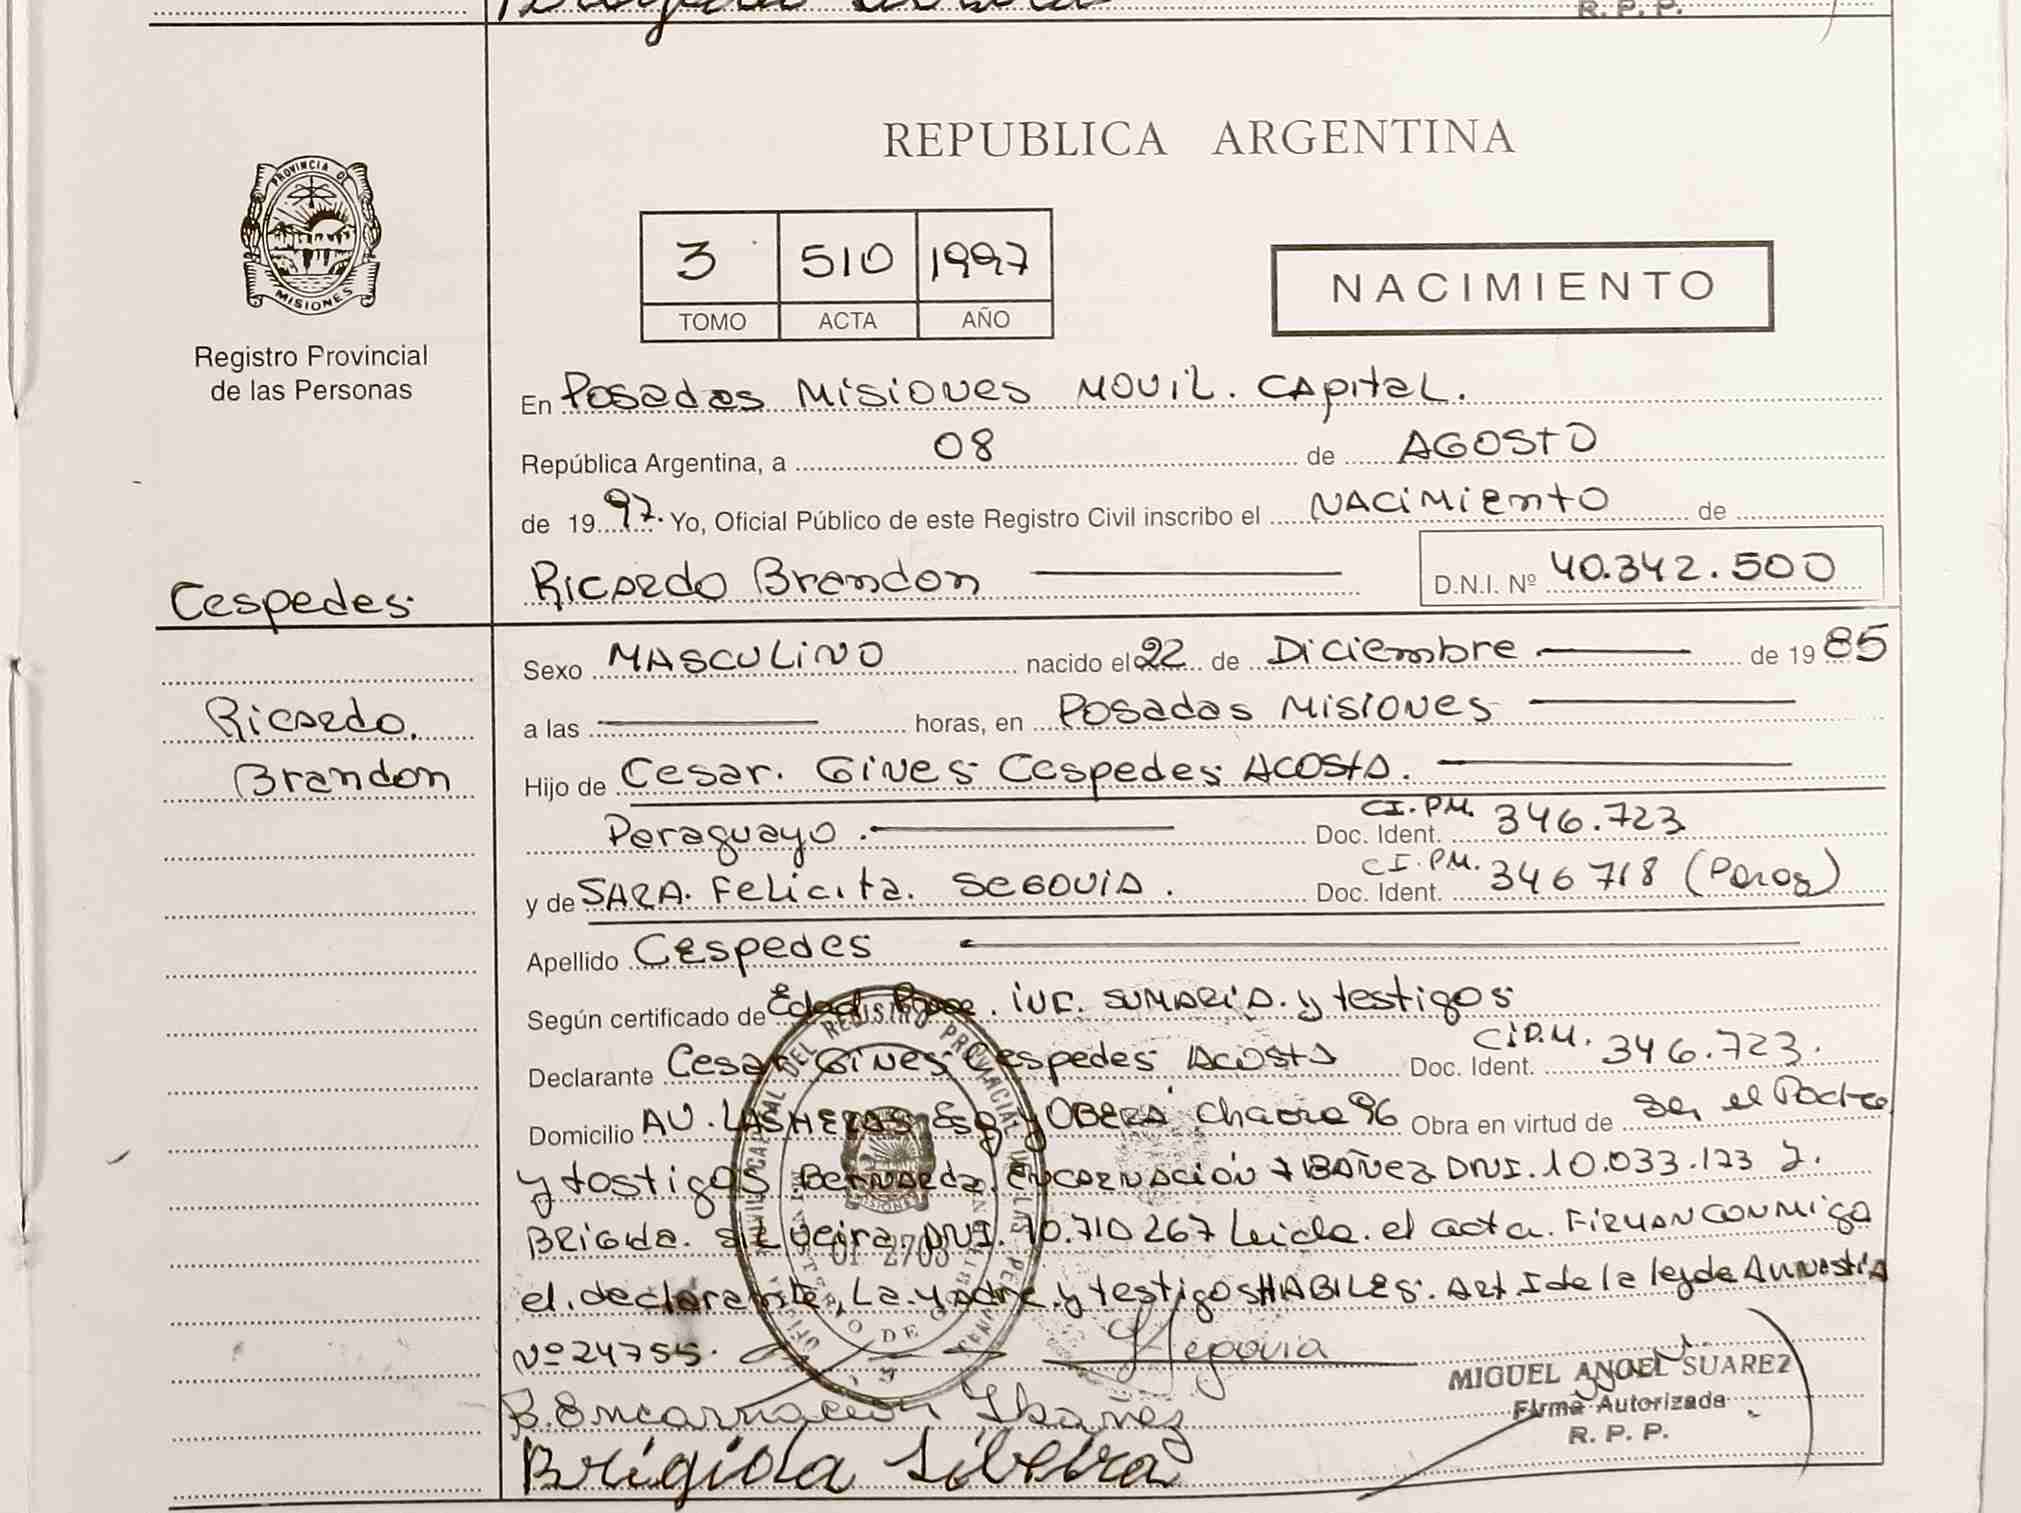 R. P. P.
REPUBLICA ARGENTINA
PROVINCIA DE
MISIONES
Registro Provincial
de las Personas
3 510 1997
TOMO ACTA AÑO
NACIMIENTO
En Posadas Misiones Movil. Capital.
República Argentina, a 08 de AGOSTO
de 1997. Yo, Oficial Público de este Registro Civil inscribo el NACIMIENTO de
Ricardo Brandon D.N.I. Nº 40.342.500
Cespedes
Ricardo.
Brandon
Sexo MASCULINO nacido el 22 de Diciembre de 1985
a las horas, en Posadas Misiones
Hijo de Cesar. Gines Cespedes Acosta.
Paraguayo. Doc. Ident. C.I. P.M. 346.723
y de SARA. Felicita. SEGOVIA. Doc. Ident. C.I. P.M. 346 718 (Parag)
Apellido Cespedes
Según certificado de Edad Pre. inf. SUMARIA. y testigos
Declarante Cesar Gines Cespedes Acosta Doc. Ident. CiP.M. 346.723.
Domicilio AV. LAS HERAS Esq y OBERA Chacra 96 Obra en virtud de Ser el Padre
y testigos Bernarda Encarnación IBAÑEZ DNI. 10.033.173 y.
BRIGIDA. SILVEIRA DNI. 10.710 267 Leida. el acta. FIRMAN CONMIGO
el. declarante, La. Madre. y testigos HABILES. Art I de la ley de Amnistia
Nº 24755.
Segovia
B. Encarnación Ibañez
Brigida Silveira
MIGUEL ANGEL SUAREZ
Firma Autorizada
R. P. P.